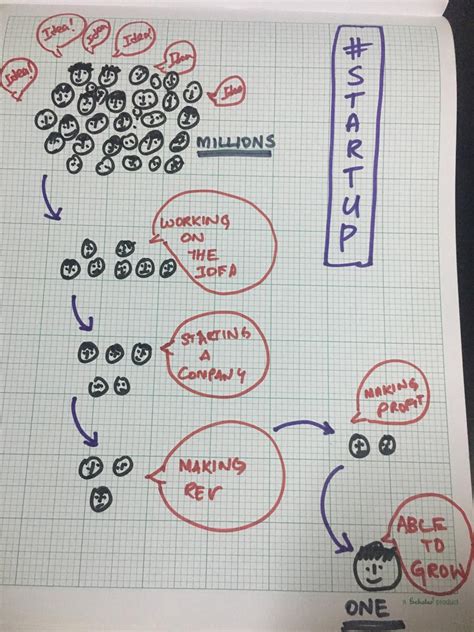 Idea!
Idea!
Idea!
Idea!
Idea
Idea
MILLIONS
#STARTUP
WORKING
ON
THE
IDEA
STARTING
A
COMPANY
MAKING
REV
MAKING
PROFIT
ABLE
TO
GROW
ONE
product